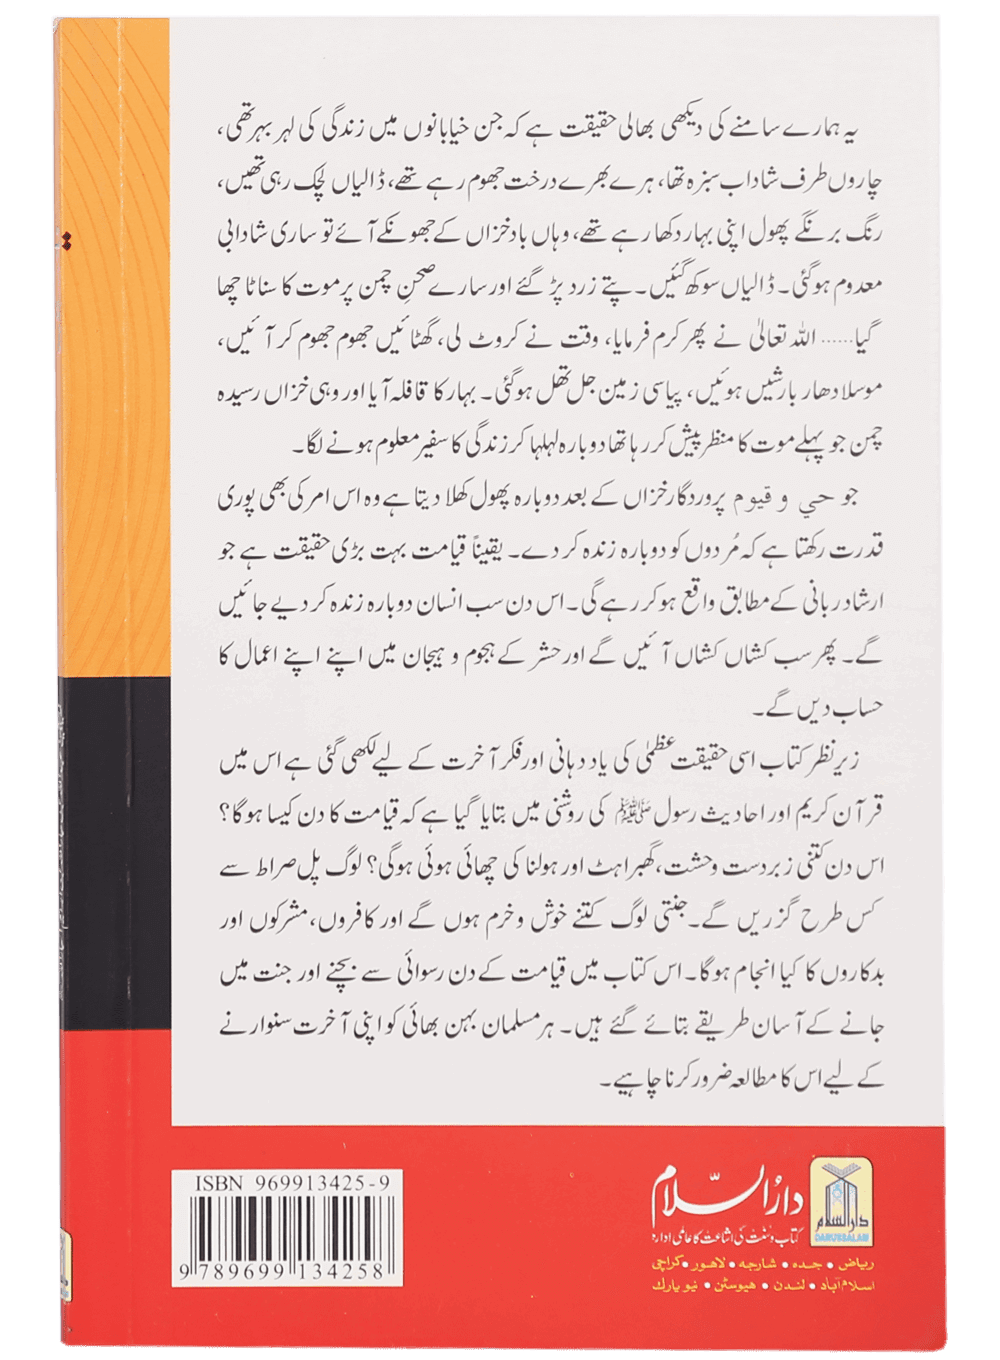 یہ ہمارے سامنے کی دیکھی بھالی حقیقت ہے کہ جن خیابانوں میں زندگی کی لہر بہر تھی،
چاروں طرف شاداب سبزہ تھا، ہرے بھرے درخت جھوم رہے تھے، ڈالیاں لچک رہی تھیں،
رنگ برنگے پھول اپنی بہار دکھا رہے تھے، وہاں باد خزاں کے جھونکے آئے تو ساری شادابی
معدوم ہوگئی۔ ڈالیاں سوکھ گئیں۔ پتے زرد پڑ گئے اور سارے صحنِ چمن پر موت کا سناٹا چھا
گیا...... اللہ تعالیٰ نے پھر کرم فرمایا، وقت نے کروٹ لی، گھٹائیں جھوم جھوم کر آئیں،
موسلا دھار بارشیں ہوئیں، پیاسی زمین جل تھل ہوگئی۔ بہار کا قافلہ آیا اور وہی خزاں رسیدہ
چمن جو پہلے موت کا منظر پیش کر رہا تھا دوبارہ لہلہا کر زندگی کا سفیر معلوم ہونے لگا۔
جو حي و قيوم پروردگار خزاں کے بعد دوبارہ پھول کھلا دیتا ہے وہ اس امر کی بھی پوری
قدرت رکھتا ہے کہ مُردوں کو دوبارہ زندہ کر دے۔ یقیناً قیامت بہت بڑی حقیقت ہے جو
ارشاد ربانی کے مطابق واقع ہو کر رہے گی۔ اس دن سب انسان دوبارہ زندہ کر دیے جائیں
گے۔ پھر سب کشاں کشاں آئیں گے اور حشر کے ہجوم و ہیجان میں اپنے اپنے اعمال کا
حساب دیں گے۔
زیر نظر کتاب اسی حقیقت عظمیٰ کی یاد دہانی اور فکر آخرت کے لیے لکھی گئی ہے اس میں
قرآن کریم اور احادیث رسول ﷺ کی روشنی میں بتایا گیا ہے کہ قیامت کا دن کیسا ہوگا؟
اس دن کتنی زبردست وحشت، گھبراہٹ اور ہولنا کی چھائی ہوئی ہوگی؟ لوگ پل صراط سے
کس طرح گزریں گے۔ جنتی لوگ کتنے خوش و خرم ہوں گے اور کافروں، مشرکوں اور
بدکاروں کا کیا انجام ہوگا۔ اس کتاب میں قیامت کے دن رسوائی سے بچنے اور جنت میں
جانے کے آسان طریقے بتائے گئے ہیں۔ ہر مسلمان بہن بھائی کو اپنی آخرت سنوارنے
کے لیے اس کا مطالعہ ضرور کرنا چاہیے۔
ISBN 969913425-9
9 789699 134258
دارُالسّلام
کتاب و سنت کی اشاعت کا عالمی ادارہ
ریاض • جدہ • شارجہ • لاہور • کراچی
اسلام آباد • لندن • ہیوسٹن • نیو یارک
دارالسلام
DARUSSALAM